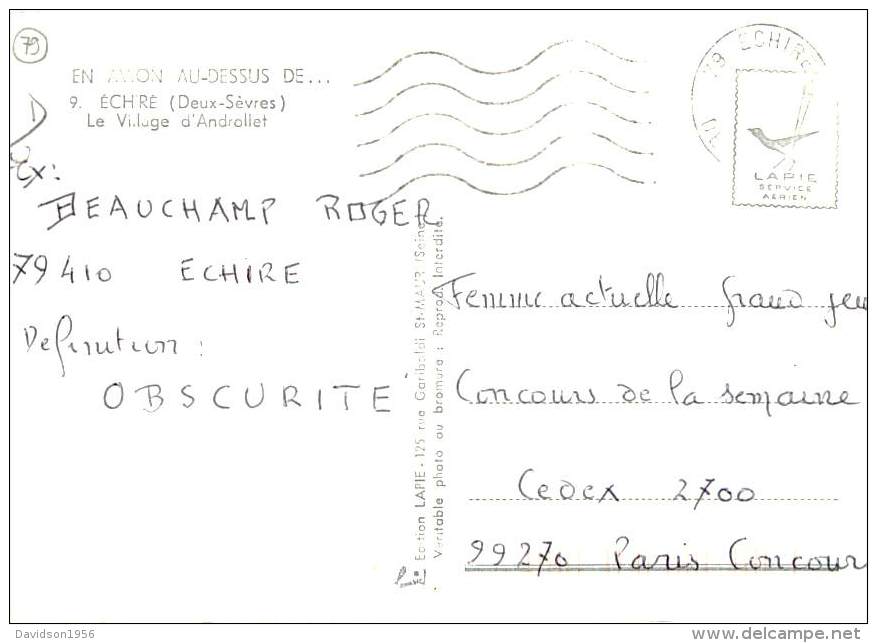 79
EN AVION AU-DESSUS DE...
9. ÉCHIRÉ (Deux-Sèvres)
Le Village d'Androllet
79 ECHIRÉ
LAPIE
SERVICE
AERIEN
Ex:
BEAUCHAMP ROGER
79410 ECHIRE
Definition :
OBSCURITE
Edition LAPIE - 125 rue Garibaldi St-MAUR (Seine
Véritable photo au bromure : Reprod. Interdite.
Femme actuelle grand jeu
Concours de la semaine
Cedex 2700
99270 Paris Concour
Davidson1956
www.delcampe.net